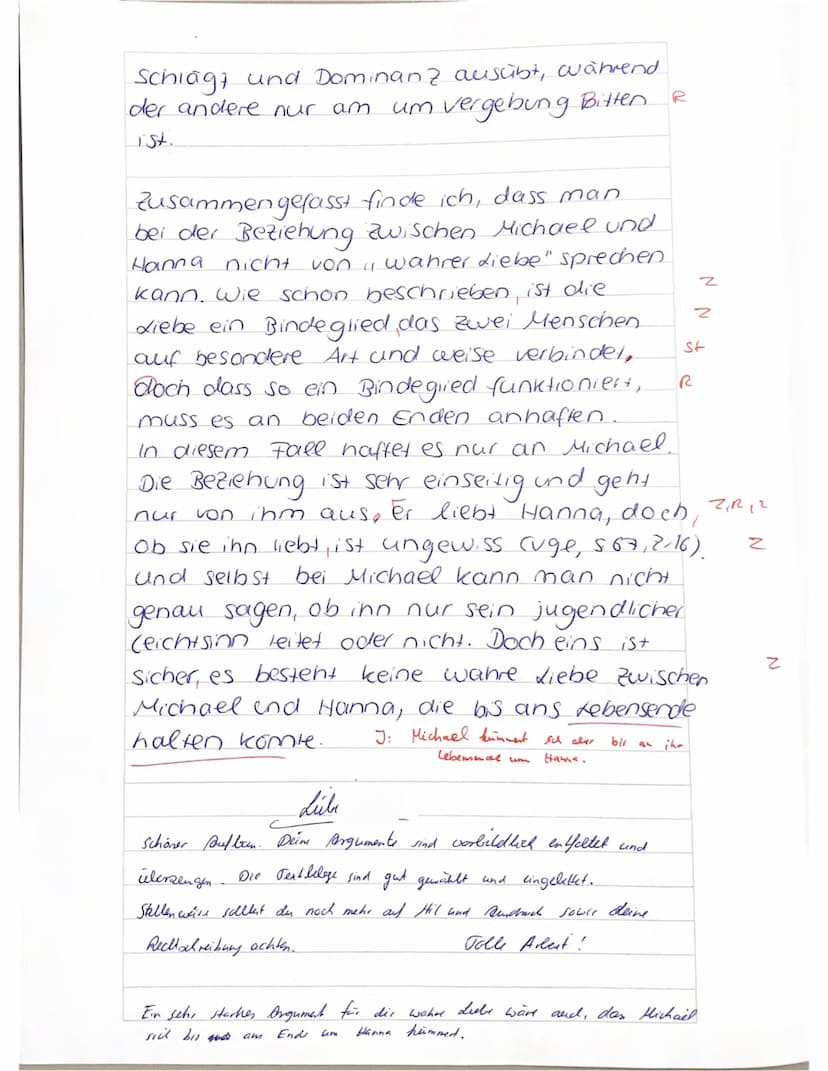 schlägt und Dominanz ausübt, während
der andere nur am um vergebung Bitten R
ist.
Zusammengefasst finde ich, dass man
bei der Beziehung zwischen Michael und
Hanna nicht von „wahrer Liebe" sprechen
kann. Wie schon beschrieben, ist die Z
Liebe ein Bindeglied, das zwei Menschen Z
auf besondere Art und weise verbindet, St
doch dass so ein Bindeglied funktioniert, R
muss es an beiden Enden anhaften.
In diesem Fall haftet es nur an Michael.
Die Beziehung ist sehr einseitig und geht
nur von ihm aus. Er liebt Hanna, doch, Z, R, Z
ob sie ihn liebt, ist ungewiss (vgl., S 67, Z 16). Z
und selbst bei Michael kann man nicht
genau sagen, ob ihn nur sein jugendlicher
Leichtsinn leitet oder nicht. Doch eins ist
sicher, es besteht keine wahre Liebe zwischen Z
Michael und Hanna, die bis ans Lebensende
halten könnte. J: Michael kümmert sich aber bis an ihr
Lebensende um Hanna.
Schöner Aufbau. Deine Argumente sind vorbildlich entfaltet und
überzeugen. Die Textbelege sind gut gewählt und eingeleitet.
Stellenweise solltest du noch mehr auf Stil und Ausdruck sowie deine
Rechtschreibung achten. Tolle Arbeit!
Ein sehr starkes Argument für die wahre Liebe wäre auch, dass Michael
sich bis ans Ende um Hanna kümmert.